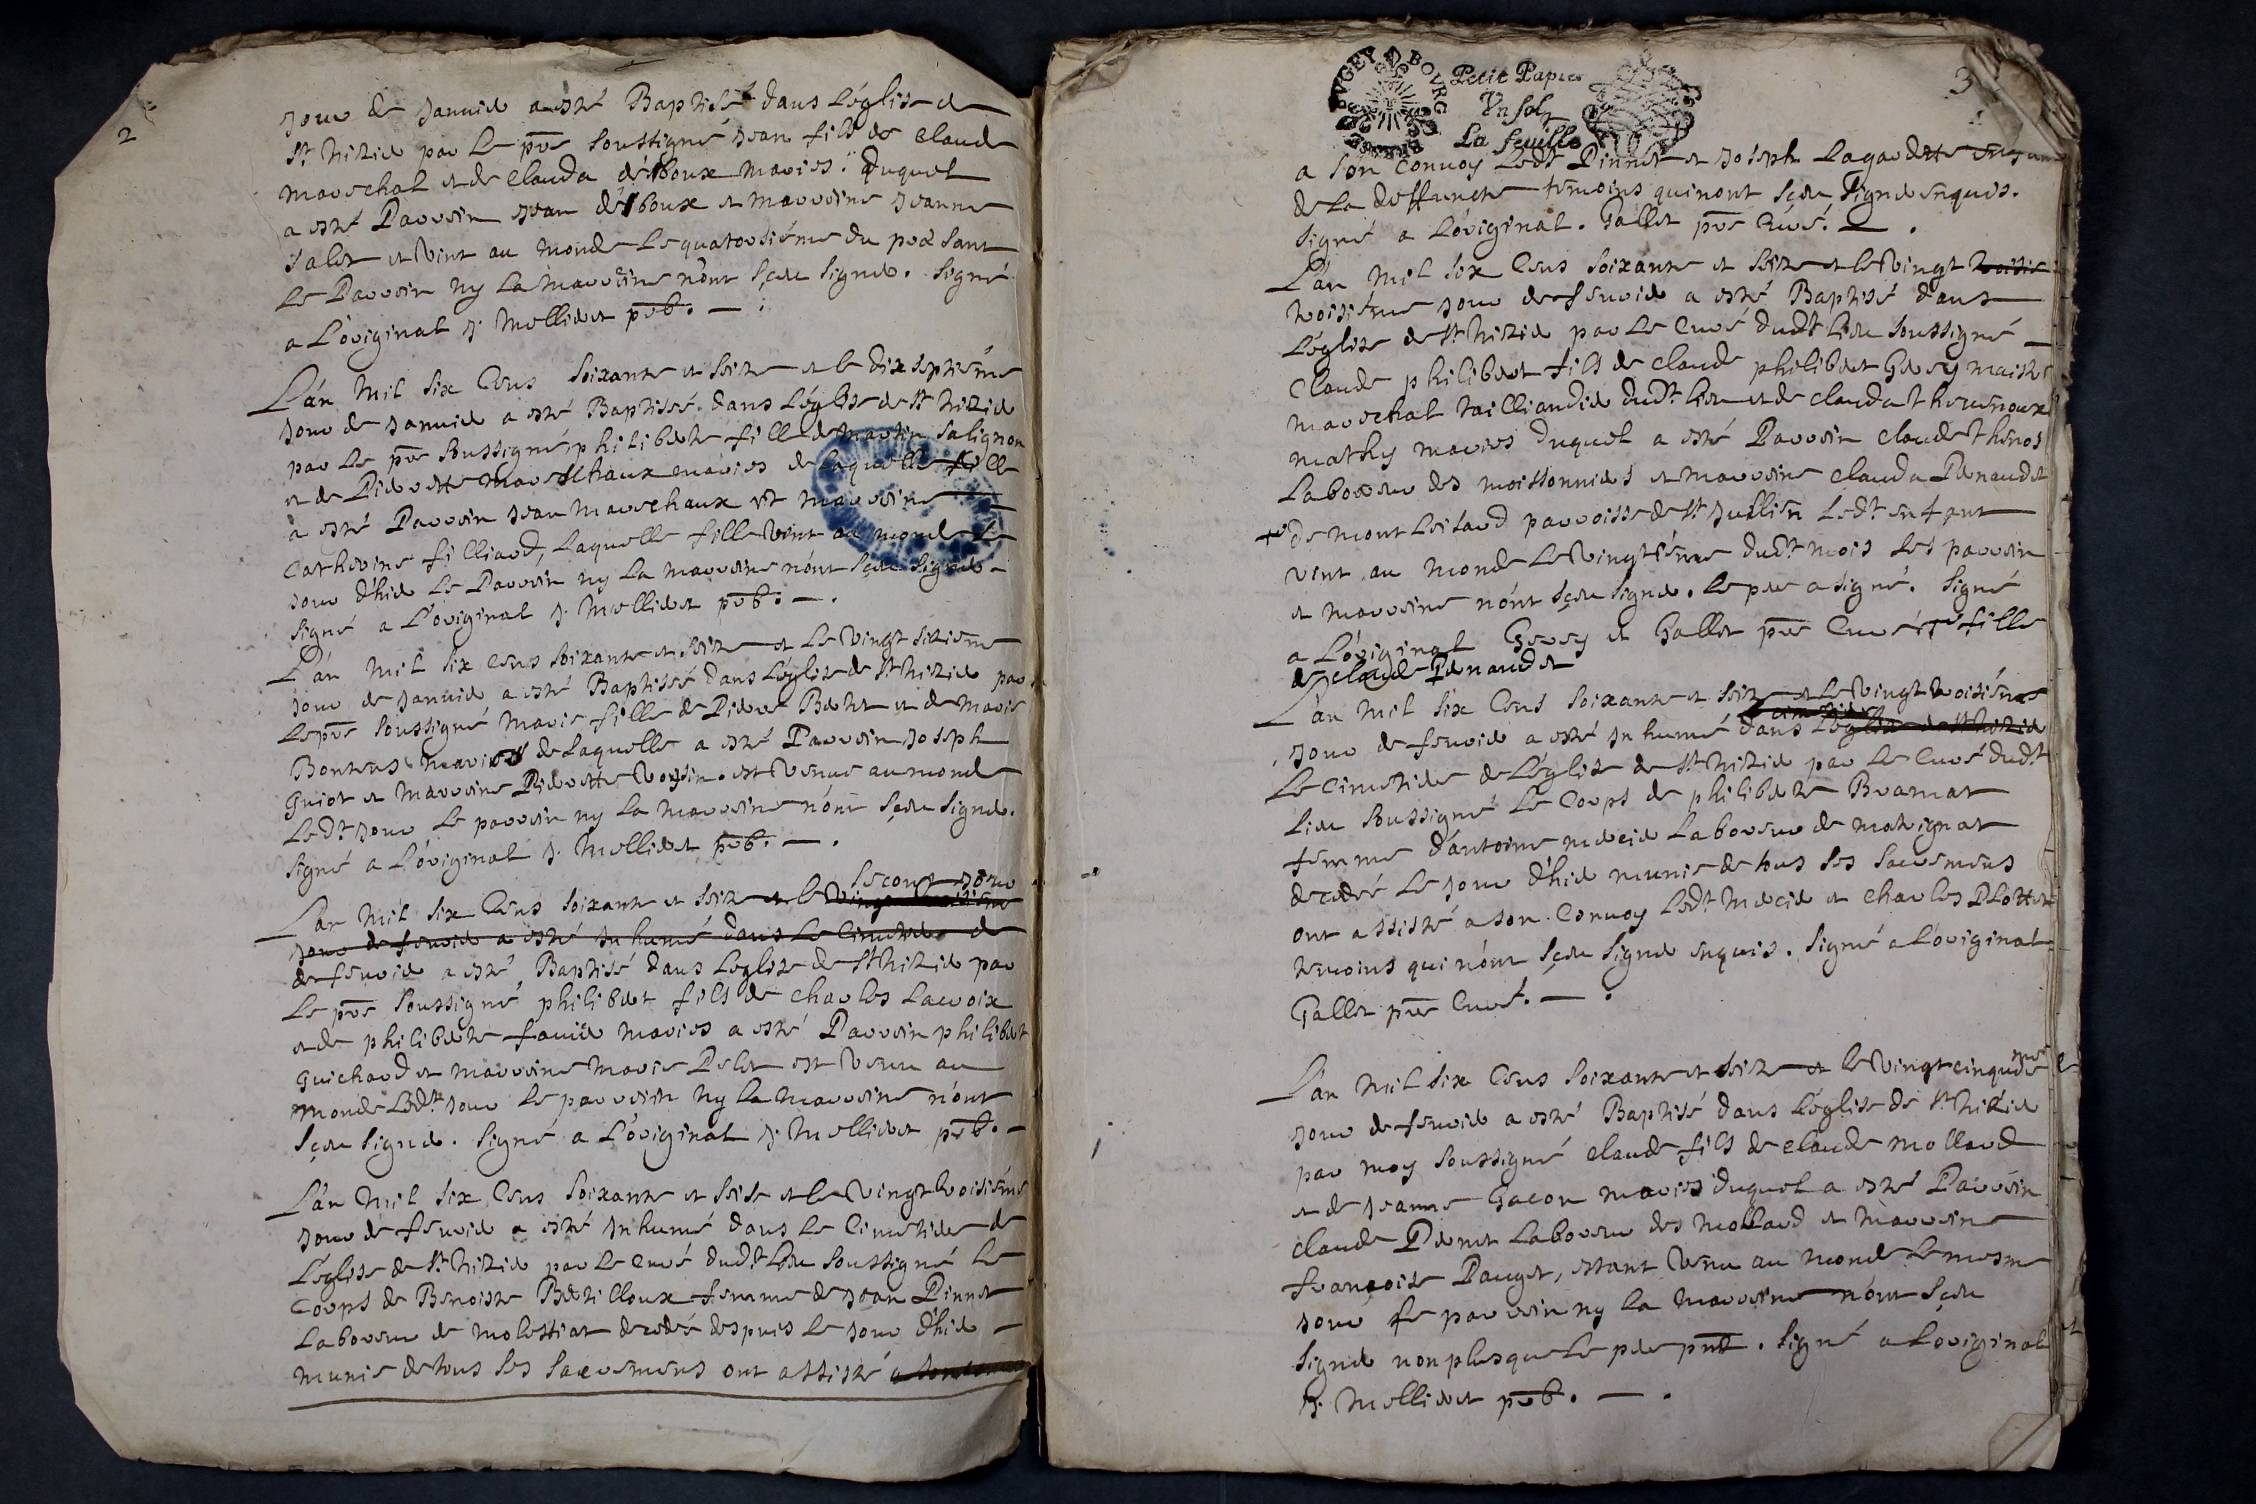 2
jour de januier a esté Baptisé dans L'églis de
St nizier par Le pre soussigné jean fils de claude
mareschal et de clauda désboux mariés. duquel
a esté Parrein jean désboux et marreine jeanne
et vint au monde Le quatorsiéme du
Le Parrein ny La marreine n'ont sçeu signer. signé
a L'original j. mellieret pbr.
L'an mil six cens soixante et seize et le dix septiéme
jour de januier a esté Baptiseé dans L'église de St nizier
par Le pre soussigné philiberte fille de martin salignon
et de Pierrette mareschaux mariés de laquelle fille
a esté Parrein jean mareschaux et marreine
catherine filliard, laquelle fille vint au monde le
jour d'hier Le Parrein ny La marreine n'ont sçeu signer
signé a L'original j. mellieret pbr.
L'an mil six cens soixante et seize et Le vingt siziéme
jour de januier a esté Baptiseé dans L'église de St nizier par
Le pre soussigné marie fille de Pierre et de marie
mariés de Laquelle a esté Parrein joseph
Guiot et marreine Pierrette voisin. est venue au monde
Ledt jour Le parrein ny La marreine n'ont sçeu signer.
signé a L'original j. mellieret pbr.
secont jour
L'an mil six cens soixante et seize et le vingt troisiéme
jour de feurier a esté inhumé dans Le cimetiere de
de feurier a esté Baptisé dans L'eglise de St nizier par
Le pre soussigné philibert fils de charles Lacroix
et de philiberte mariés a esté Parrein philibert
Guichard et marreine marie Pelet est venu au
monde Ledt jour Le parrein ny La marreine n'ont
sçeu signer. signé a L'original j. mellieret pbr.
L'an mil six cens soixante et seise et le vingt troisiéme
jour de feurier a esté inhumé dans Le cimetiere de
L'église de St nizier par Le curé dudt Lieu soussigné Le
corps de Benoiste femme de jean Pinnet
Laboureur de decedeé despuis Le jour d'hier
munie de tous ses sacremens ont assisté a son
BVGEY BOVRG
Petit Papier
Vn sol
La feuille
3
a son convoy Ledt Pinnet et joseph
de La deffuncte temoins qui n'ont sçeu signer enquis.
signé a L'original. Gallet pre curé.
L'an mil six cens soixante et seize et le vingt troisie
troisiéme jour de feurier a esté Baptisé dans
L'église de St nizier par Le curé dudt Lieu soussigné
claude philibert fils de claude philibert Gerey maistre
mareschal tailliandier dudt Lieu et de clauda
mathy mariés duquel a esté Parrein claude
Laboureur des moissonniers et marreine clauda Penaudet
de parroisse de St jullien Ledt enfant
vint au monde Le vingtiéme dudt mois Les parrein
et marreine n'ont sçeu signer. Le pere a signé. signé
a L'original Gerey et Gallet pre curé fille
de claude Penaudet
L'an mil six cens soixante et seize et Le vingt troisiéme
cimetiere
jour de feurier a esté inhumé dans L'église de St nizier
Le cimetiere de L'église de St nizier par Le curé dudt
Lieu soussigné Le corps de philiberte Bramar
femme d'antoine mercier Laboureur de matrignat
decedeé Le jour d'hier munie de tous ses sacremens
ont assisté a son convoy Ledt mercier et charles
temoins qui n'ont sçeu signer enquis. signé a L'original
Gallet pre curé.
L'an mil six cens soixante et seize et le vingt cinquiéme
jour de feurier a esté Baptisé dans L'église de St nizier
par moy soussigné claude fils de claude mollard
et de jeanne Gacon mariés duquel a esté Parrein
claude Laboureur des mollard et marreine
françoise Pauget, estant venu au monde Le mesme
jour Le parrein ny La marreine n'ont sçeu
signer non plus que Le pere pnt. signé a L'original
j. mellieret pbr.